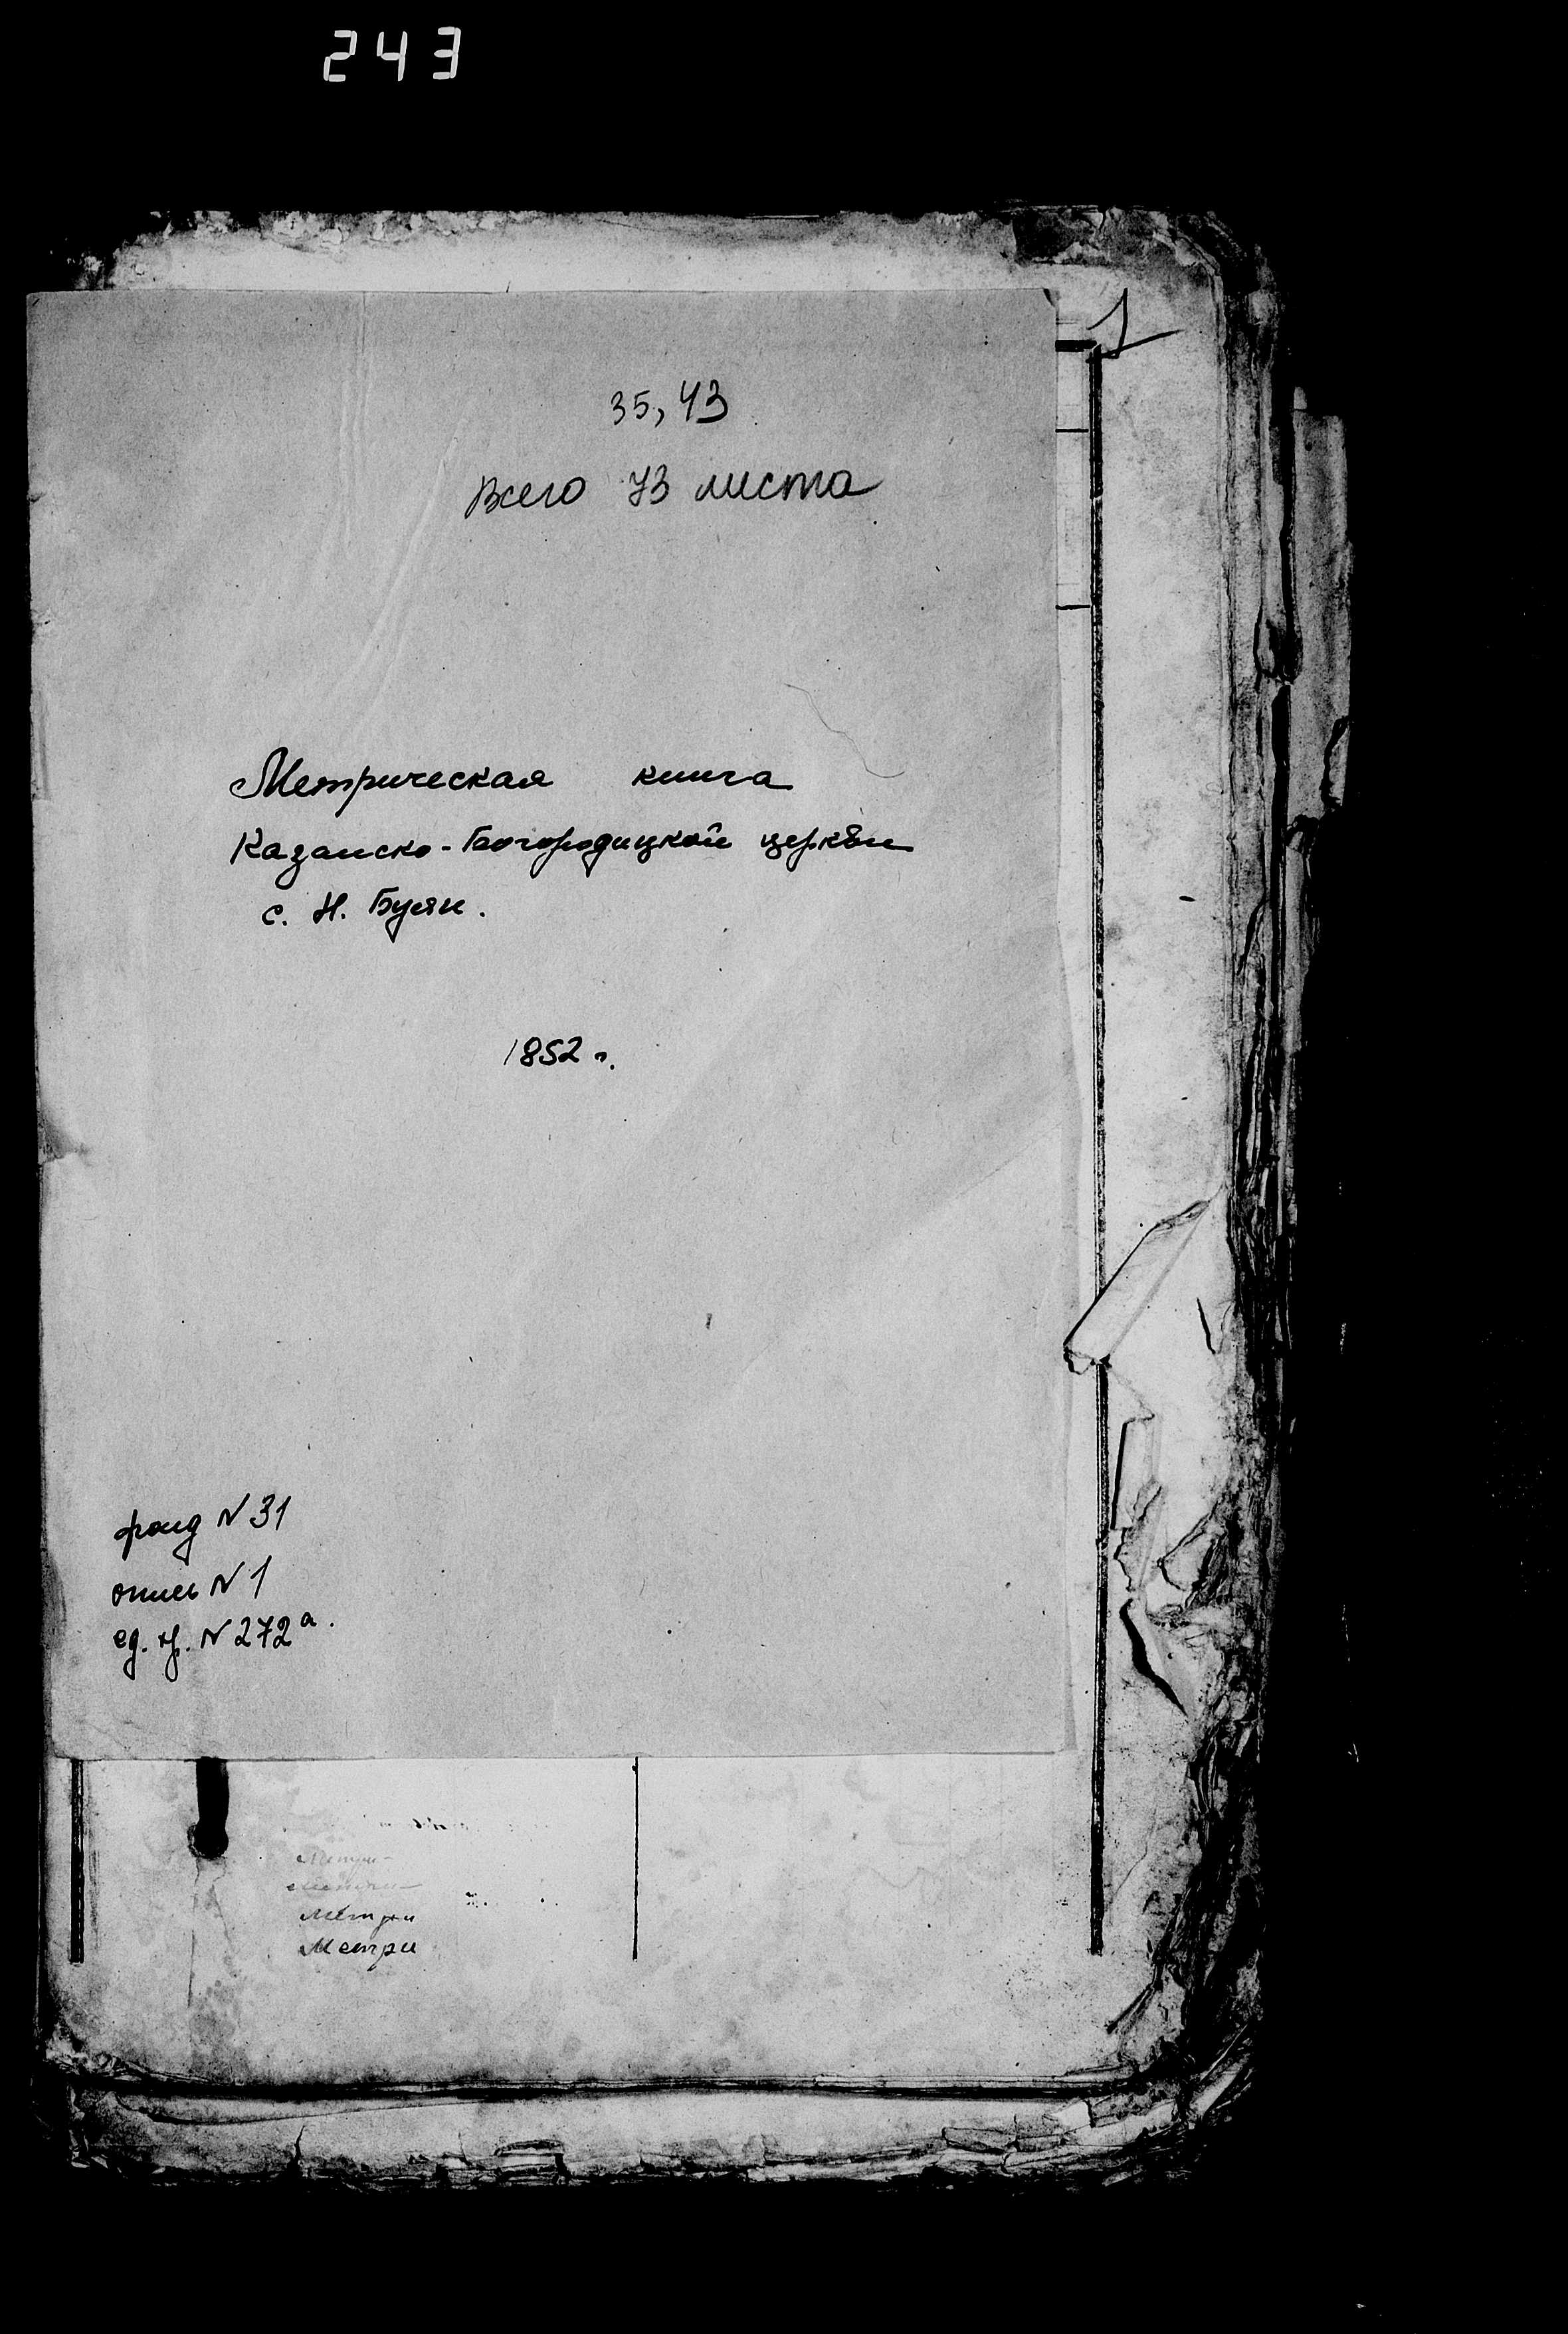 243
1
35, 43
Всего 73 листа
Метрическая книга
Казанско-Богородицкой церкви
с. Н. Буян.
1852 г.
фонд N 31
опись N 1
ед. хр. N 272а.
Метри
Метри